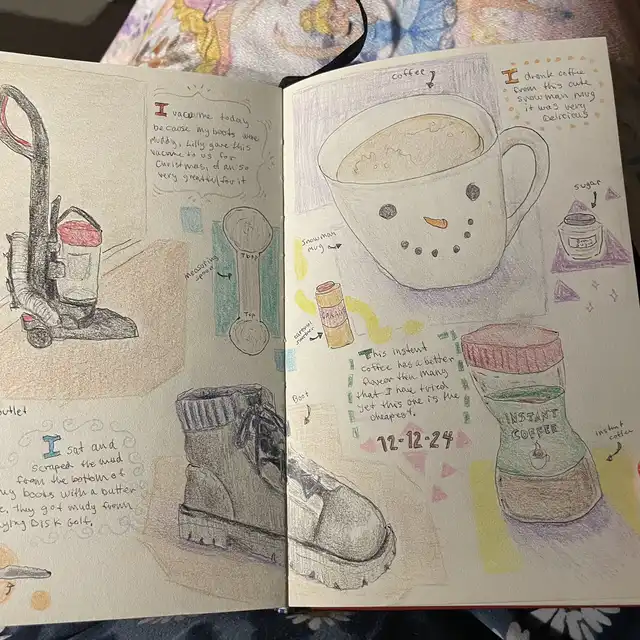 I vacume today
because my boots were
muddy, Lilly gave this
vacume to us for
Christmas, I am so
very greatful for it
Measuring
spoon
Tbsp
Tsp
outlet
I sat and
scraped the mud
from the bottom of
my boots with a butter
they got mudy from
playing DISK golf.
coffee
I drank coffee
from this cute
snowman mug
it was very
Delicious
sugar
Snowman
Mug
Boot
This instant
coffee has a better
flavor then many
that I have tried
yet this one is the
cheapest.
12-12-24
INSTANT
COFFEE
instant
coffee